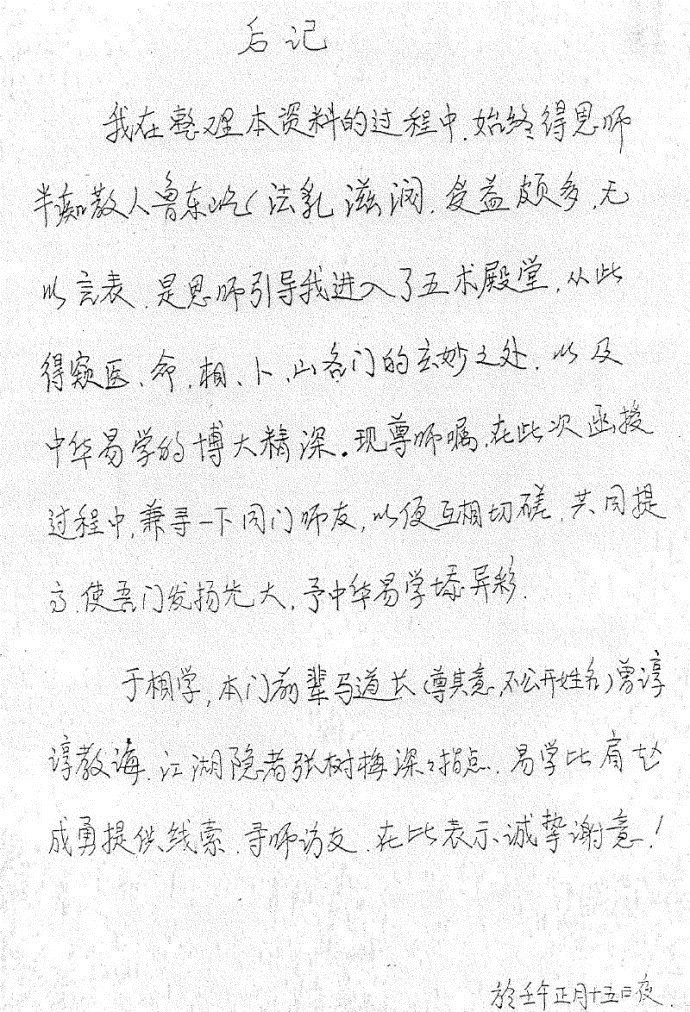 后记
我在整理本资料的过程中.始终得恩师
半痴散人鲁东屹法乳滋润.受益颇多.无
以言表.是恩师引导我进入了五术殿堂.从此
得窥医、命、相、卜、山各门的玄妙之处.以及
中华易学的博大精深.现尊师嘱.在此次函授
过程中,兼寻一下同门师友,以便互相切磋.共同提
高.使吾门发扬光大.予中华易学添异彩.
于相学,本门前辈马道长(尊其意,不公开姓名)曾谆
谆教诲.江湖隐者张树梅深深指点.易学比肩赵
成勇提供线索.寻师访友.在此表示诚挚谢意!
於壬午正月十五日夜.